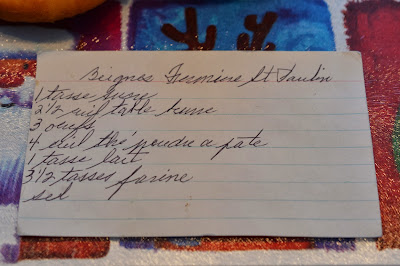 Beignes Fermine St Paulin
1 tasse sucre
2 1/2 cuil table beurre
3 oeufs
4 cuil thé poudre a pate
1 tasse lait
3 1/2 tasses farine
sel